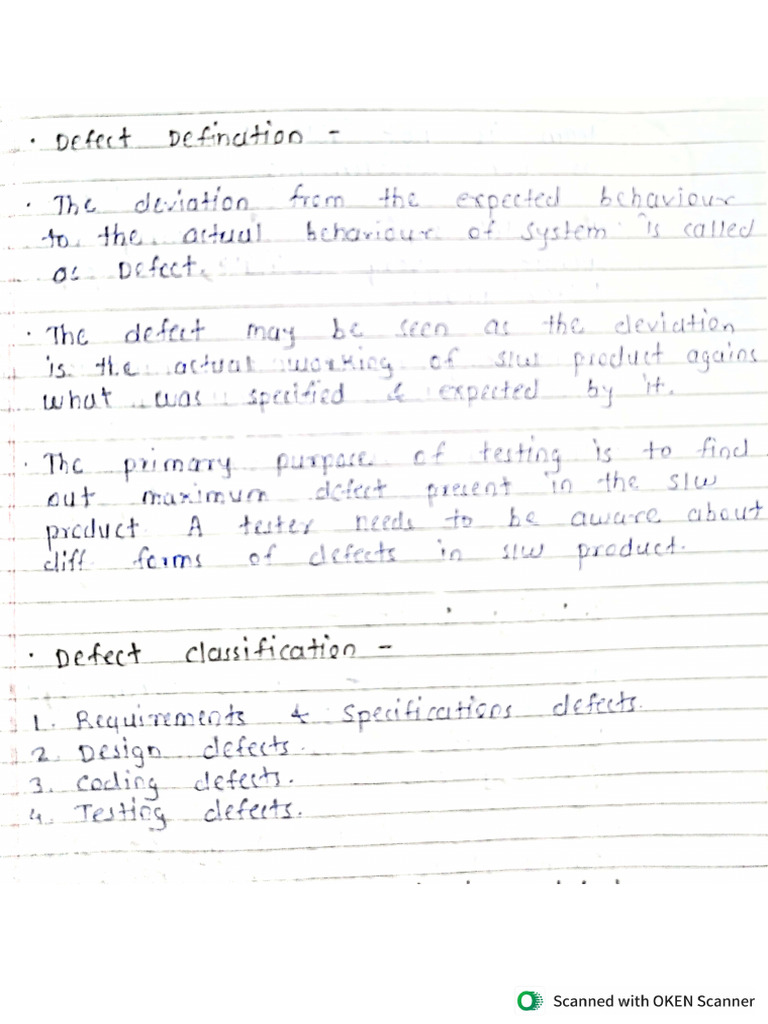 · Defect Defination -
· The deviation from the expected behaviour
to the actual behaviour of system is called
as Defect.
· The defect may be seen as the deviation
is the actual working of s/w product agains
what was specified & expected by it.
· The primary purpose of testing is to find
out maximum defect present in the s/w
product. A tester needs to be aware about
diff forms of defects in s/w product.
· Defect classification -
1. Requirements & Specifications defects.
2. Design defects.
3. Coding defects.
4. Testing defects.
Scanned with OKEN Scanner